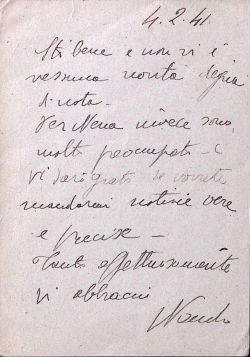 4.2.41
Sto bene e non vi è
nessuna novità degna
di nota.
Per Nena invece sono
molto preoccupato e
vi sarò grato se vorrete
mandarmi notizie vere
e precise -
Tanto affettuosamente
vi abbraccio
Nando